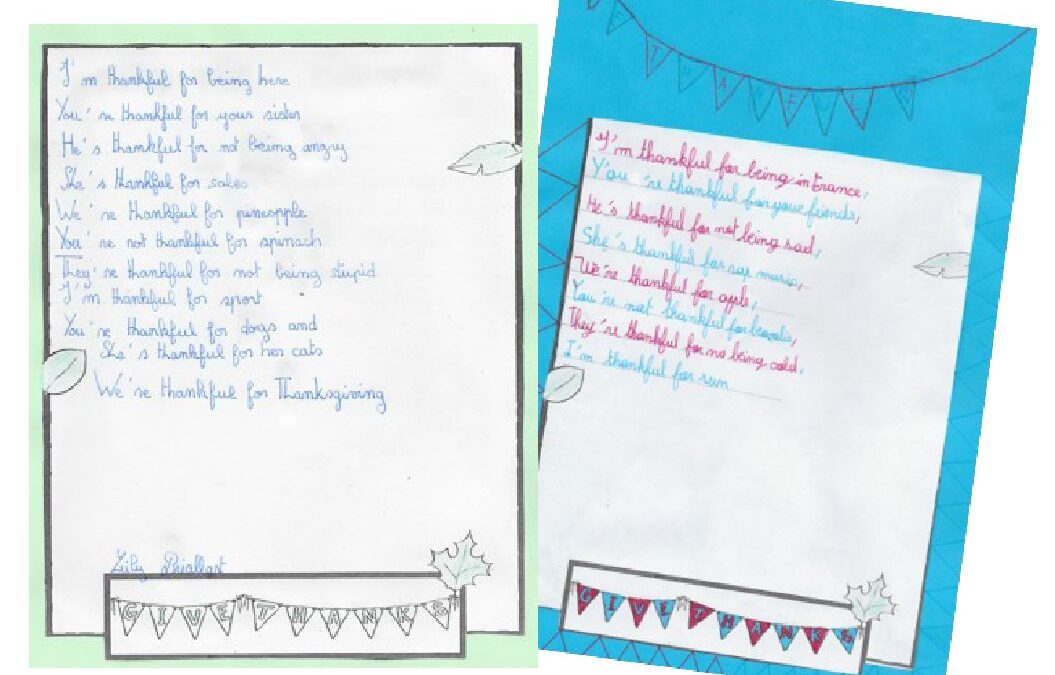 I'm thankful for being here
You're thankful for your sister
He's thankful for not being angry
She's thankful for sales
We're thankful for pineapple
You're not thankful for spinach
They're thankful for not being stupid
I'm thankful for sport
You're thankful for dogs and
She's thankful for her cats
We're thankful for Thanksgiving
Lily
GIVE THANKS
THANKS
I'm thankful for being in France,
You're thankful for your friends,
He's thankful for not being sad,
She's thankful for rap music,
We're thankful for apple,
You're not thankful for
They're thankful for no being cold,
I'm thankful for sun
GIVE THANKS